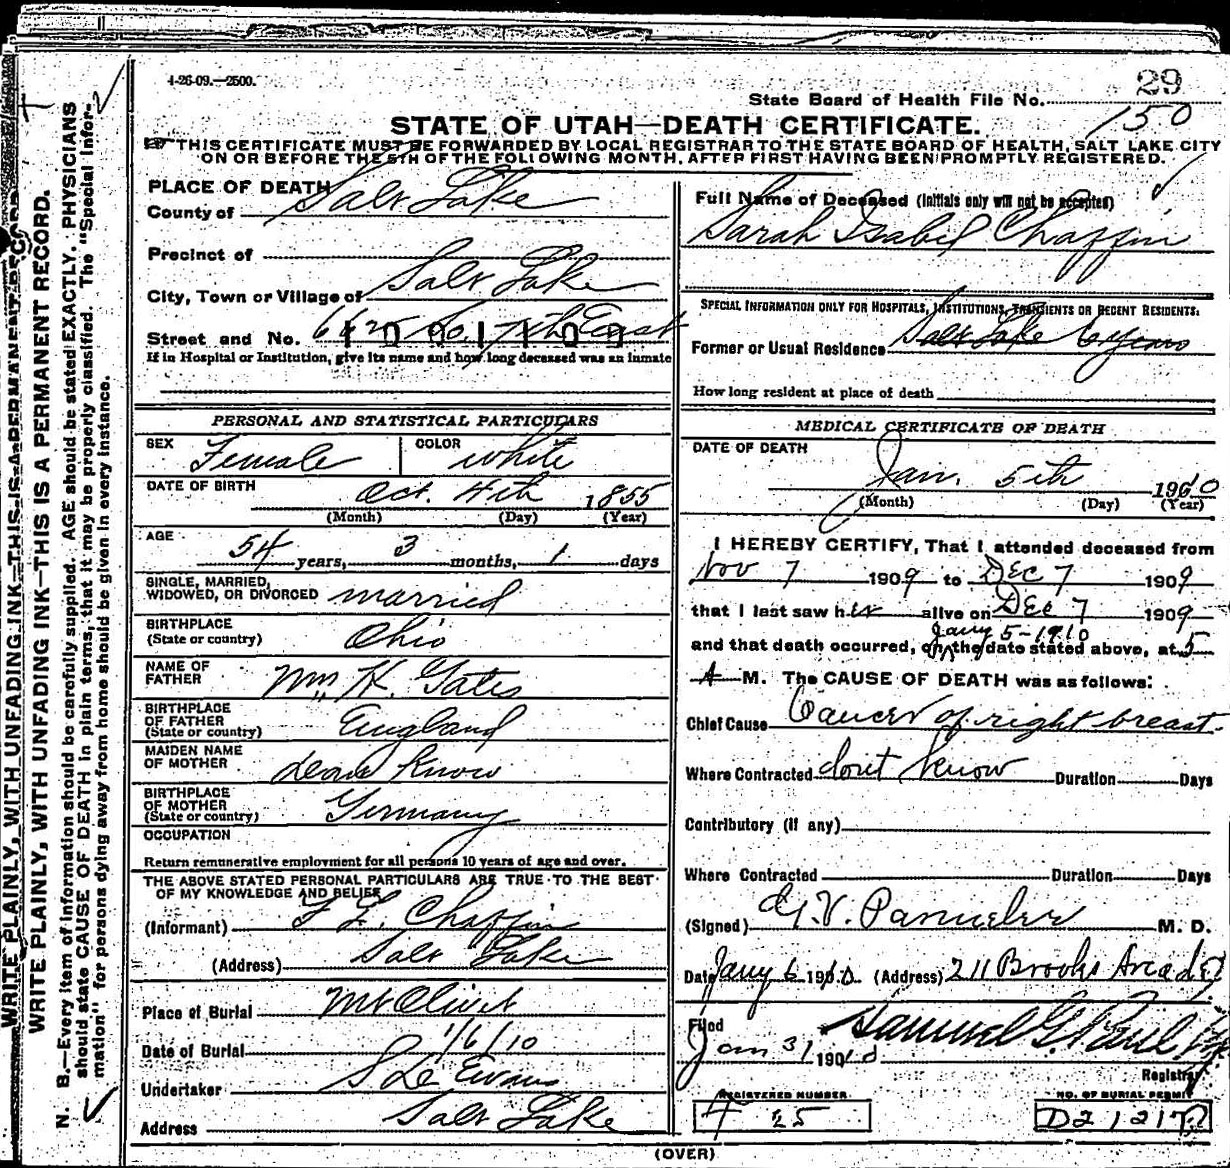 4-26-09.—2500.
29
State Board of Health File No.
150
STATE OF UTAH—DEATH CERTIFICATE.
THIS CERTIFICATE MUST BE FORWARDED BY LOCAL REGISTRAR TO THE STATE BOARD OF HEALTH, SALT LAKE CITY
ON OR BEFORE THE 5TH OF THE FOLLOWING MONTH, AFTER FIRST HAVING BEEN PROMPTLY REGISTERED.
PLACE OF DEATH
County of Salt Lake
Precinct of
City, Town or Village of Salt Lake
Street and No. So. 7th East
If in Hospital or Institution, give its name and how long deceased was an inmate
PERSONAL AND STATISTICAL PARTICULARS
SEX Female COLOR white
DATE OF BIRTH Oct. 4th 1855
(Month) (Day) (Year)
AGE 54 years, 3 months, 1 days
SINGLE, MARRIED,
WIDOWED, OR DIVORCED married
BIRTHPLACE
(State or country) Ohio
NAME OF
FATHER Wm K. Gates
BIRTHPLACE
OF FATHER
(State or country) England
MAIDEN NAME
OF MOTHER dont Know
BIRTHPLACE
OF MOTHER
(State or country) Germany
OCCUPATION
Return remunerative employment for all persons 10 years of age and over.
THE ABOVE STATED PERSONAL PARTICULARS ARE TRUE TO THE BEST
OF MY KNOWLEDGE AND BELIEF
(Informant) Chaffin
(Address) Salt Lake
Place of Burial Mt Olivet
Date of Burial 1/6/10
Undertaker S De Evans
Address Salt Lake
Full Name of Deceased (Initials only will not be accepted)
Sarah Isabel Chaffin
SPECIAL INFORMATION ONLY FOR HOSPITALS, INSTITUTIONS, TRANSIENTS OR RECENT RESIDENTS:
Former or Usual Residence Salt Lake 6 years
How long resident at place of death
MEDICAL CERTIFICATE OF DEATH
DATE OF DEATH
Jan. 5th 1910
(Month) (Day) (Year)
I HEREBY CERTIFY, That I attended deceased from
Nov 7 1909 to Dec 7 1909
that I last saw her alive on Dec 7 1909
Jany 5-1910
and that death occurred, on the date stated above, at 5
A M. The CAUSE OF DEATH was as follows:
Chief Cause Cancer of right breast
Where Contracted dont know Duration Days
Contributory (if any)
Where Contracted Duration Days
(Signed) M. D.
Date Jany 6 1910 (Address) 211 Brooks Arcade
Filed
Jan 31 1910 Samuel G. Paul
Registrar
REGISTERED NUMBER
25
NO. OF BURIAL PERMIT
(OVER)
WRITE PLAINLY, WITH UNFADING INK—THIS IS A PERMANENT RECORD.
WRITE PLAINLY, WITH UNFADING INK—THIS IS A PERMANENT RECORD.
N. B.—Every item of information should be carefully supplied. AGE should be stated EXACTLY. PHYSICIANS
should state CAUSE OF DEATH in plain terms, that it may be properly classified. The "Special Infor-
mation" for persons dying away from home should be given in every instance.